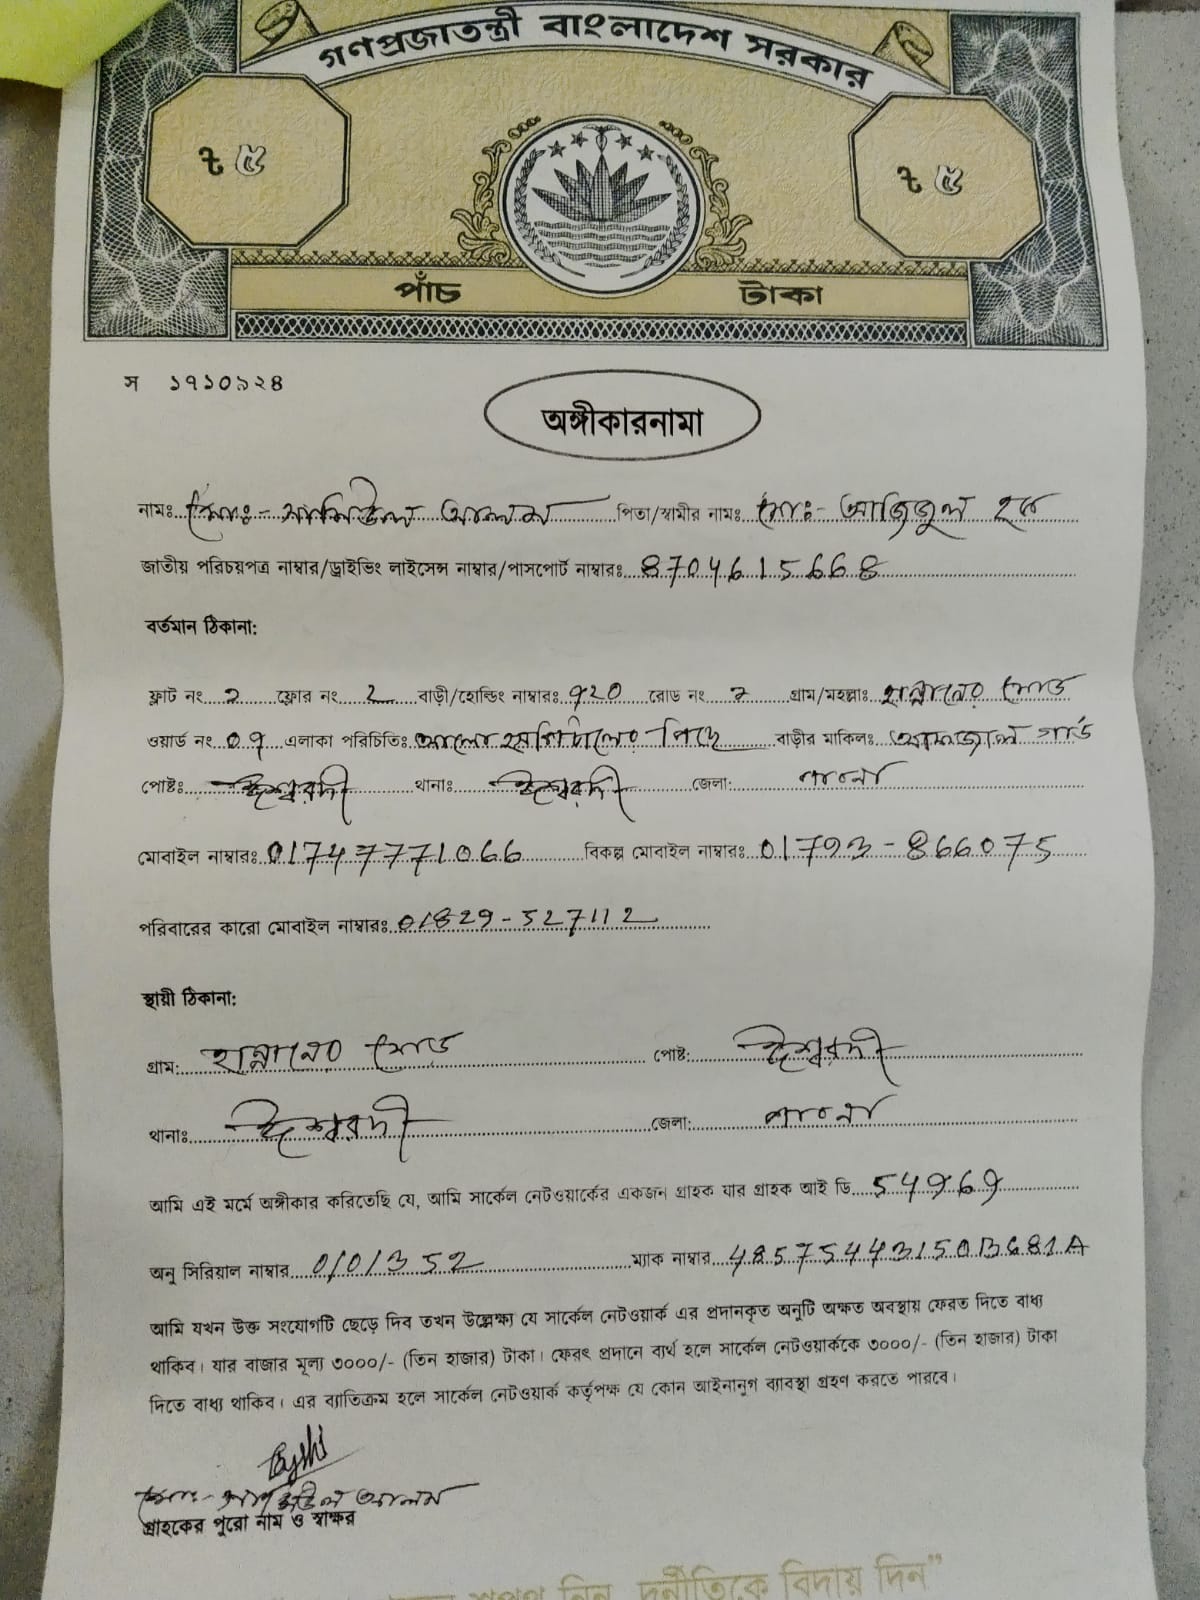 গণপ্রজাতন্ত্রী বাংলাদেশ সরকার
৳ ৫
৳ ৫
পাঁচ টাকা
স ১৭১০৯২৪
অঙ্গীকারনামা
নামঃ মোঃ- সামিউল আলম পিতা/স্বামীর নামঃ মোঃ- আজিজুল হক
জাতীয় পরিচয়পত্র নাম্বার/ড্রাইভিং লাইসেন্স নাম্বার/পাসপোর্ট নাম্বারঃ 8704615668
বর্তমান ঠিকানা:
ফ্লাট নং ২ ফ্লোর নং 2 বাড়ী/হোল্ডিং নাম্বারঃ ৭20 রোড নং গ্রাম/মহল্লাঃ হান্নানের মোড়
ওয়ার্ড নং 0৭ এলাকা পরিচিতিঃ আলো হসপিটালের পিছে বাড়ীর মাকিলঃ আফজাল গার্ড
পোষ্টঃ ঈশ্বরদী থানাঃ ঈশ্বরদী জেলা: পাবনা
মোবাইল নাম্বারঃ 01747771066 বিকল্প মোবাইল নাম্বারঃ 01793-866075
পরিবারের কারো মোবাইল নাম্বারঃ 01829-527112
স্থায়ী ঠিকানা:
গ্রাম: হান্নানের মোড় পোষ্ট: ঈশ্বরদী
থানাঃ ঈশ্বরদী জেলা: পাবনা
আমি এই মর্মে অঙ্গীকার করিতেছি যে, আমি সার্কেল নেটওয়ার্কের একজন গ্রাহক যার গ্রাহক আই ডি 54969
অনু সিরিয়াল নাম্বার 0101352 ম্যাক নাম্বার 4857544315013681A
আমি যখন উক্ত সংযোগটি ছেড়ে দিব তখন উল্লেক্ষ্য যে সার্কেল নেটওয়ার্ক এর প্রদানকৃত অনুটি অক্ষত অবস্থায় ফেরত দিতে বাধ্য
থাকিব। যার বাজার মূল্য ৩০০০/- (তিন হাজার) টাকা। ফেরৎ প্রদানে ব্যর্থ হলে সার্কেল নেটওয়ার্ককে ৩০০০/- (তিন হাজার) টাকা
দিতে বাধ্য থাকিব। এর ব্যাতিক্রম হলে সার্কেল নেটওয়ার্ক কর্তৃপক্ষ যে কোন আইনানুগ ব্যাবস্থা গ্রহণ করতে পারবে।
মোঃ- সামিউল আলম
গ্রাহকের পুরো নাম ও স্বাক্ষর
শপথ নিন, দুর্নীতিকে বিদায় দিন"